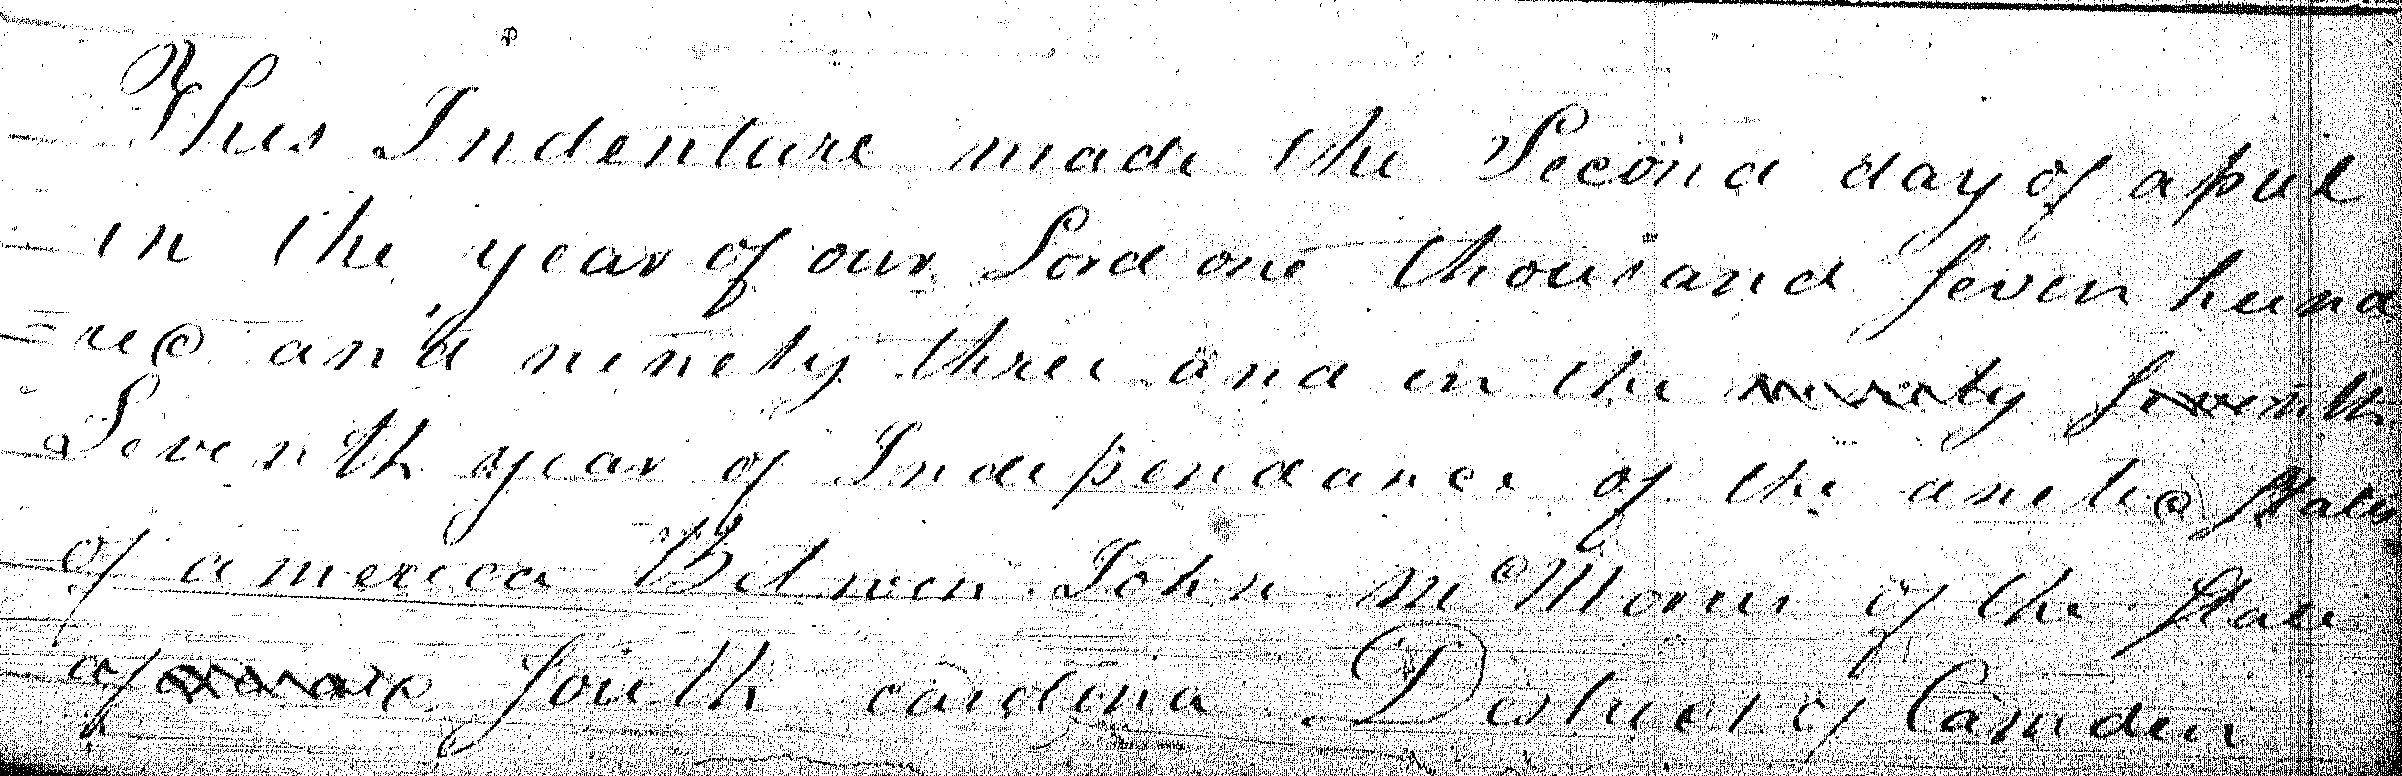 This Indenture made the Second day of april
in the year of our Lord one thousand Seven hund
=red and ninety three and in the ninety Seventh
Seventh year of Independance of the aneted States
of america Between John McMorris of the State
of South carolina District of Camden